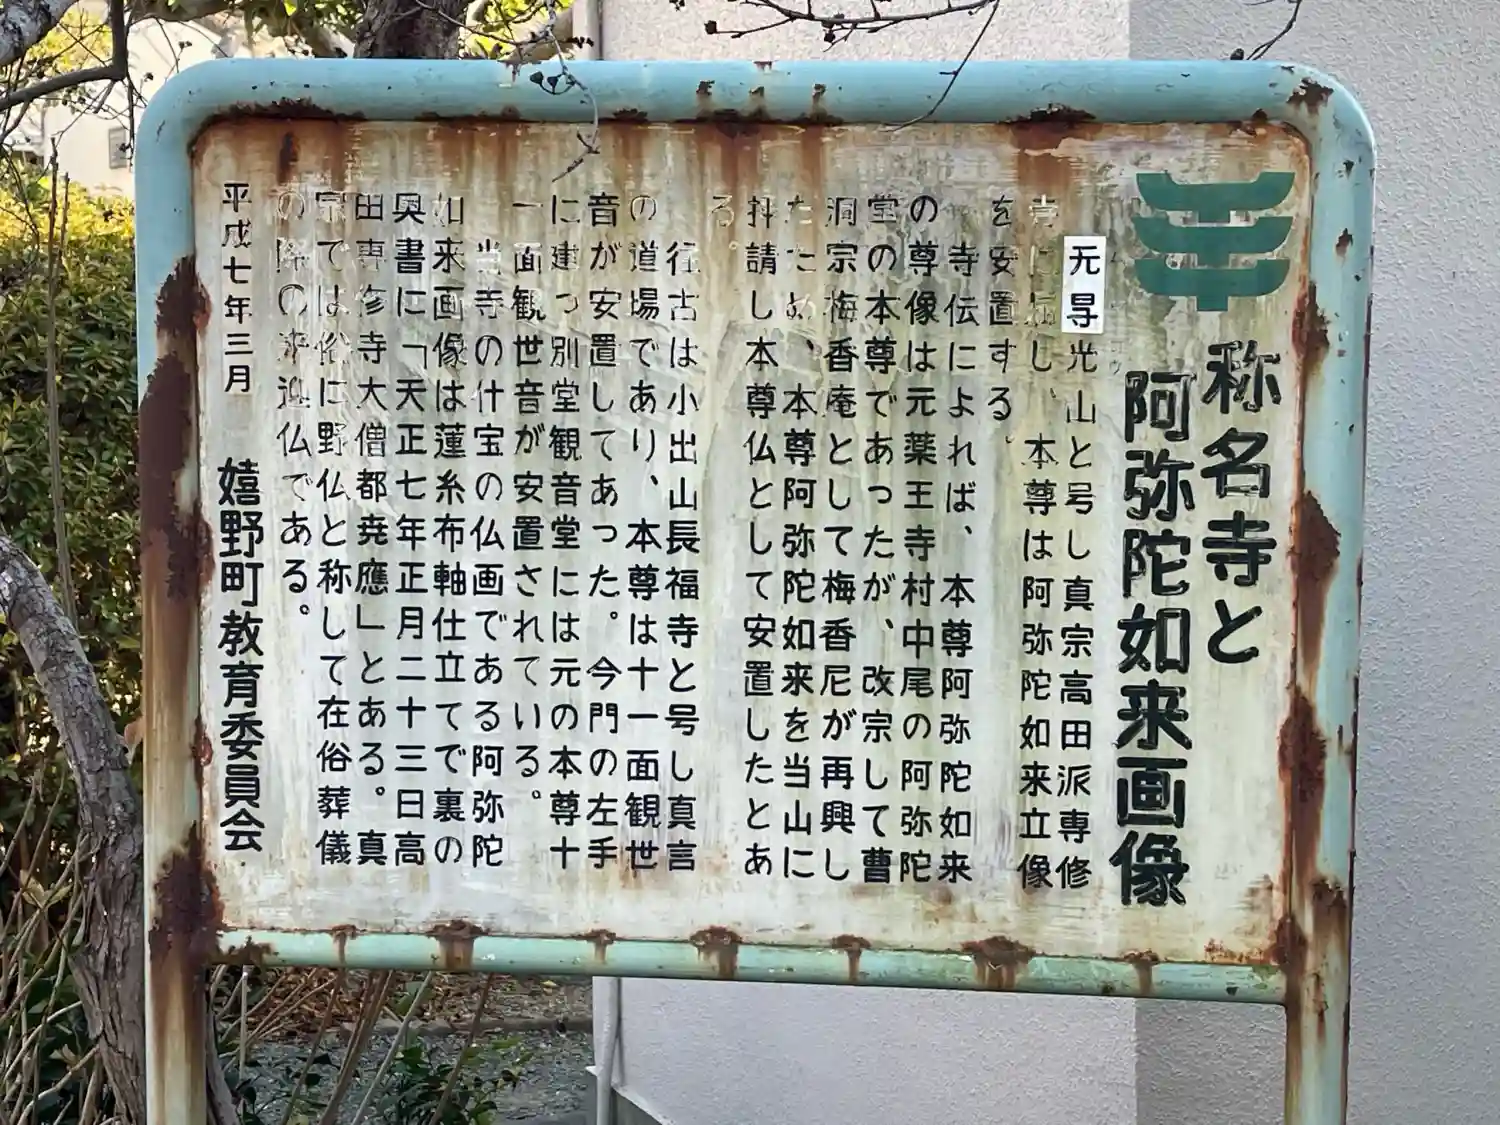 称名寺と
阿弥陀如来画像
无㝵光山と号し真宗高田派専修
寺に属し、本尊は阿弥陀如来立像
を安置する。
寺伝によれば、本尊阿弥陀如来
の尊像は元薬王寺村中尾の阿弥陀
堂の本尊であったが、改宗して曹
洞宗梅香庵として梅香尼が再興し
たため、本尊阿弥陀如来を当山に
抖請し本尊仏として安置したとあ
る。
往古は小出山長福寺と号し真言
の道場であり、本尊は十一面観世
音が安置してあった。今門の左手
に建つ別堂観音堂には元の本尊十
一面観世音が安置されている。
当寺の什宝の仏画である阿弥陀
如来画像は蓮糸布軸仕立てで裏の
奥書に「天正七年正月二十三日高
田専修寺大僧都尭應」とある。真
宗では俗に野仏と称して在俗葬儀
の際の来迎仏である。
平成七年三月
嬉野町教育委員会